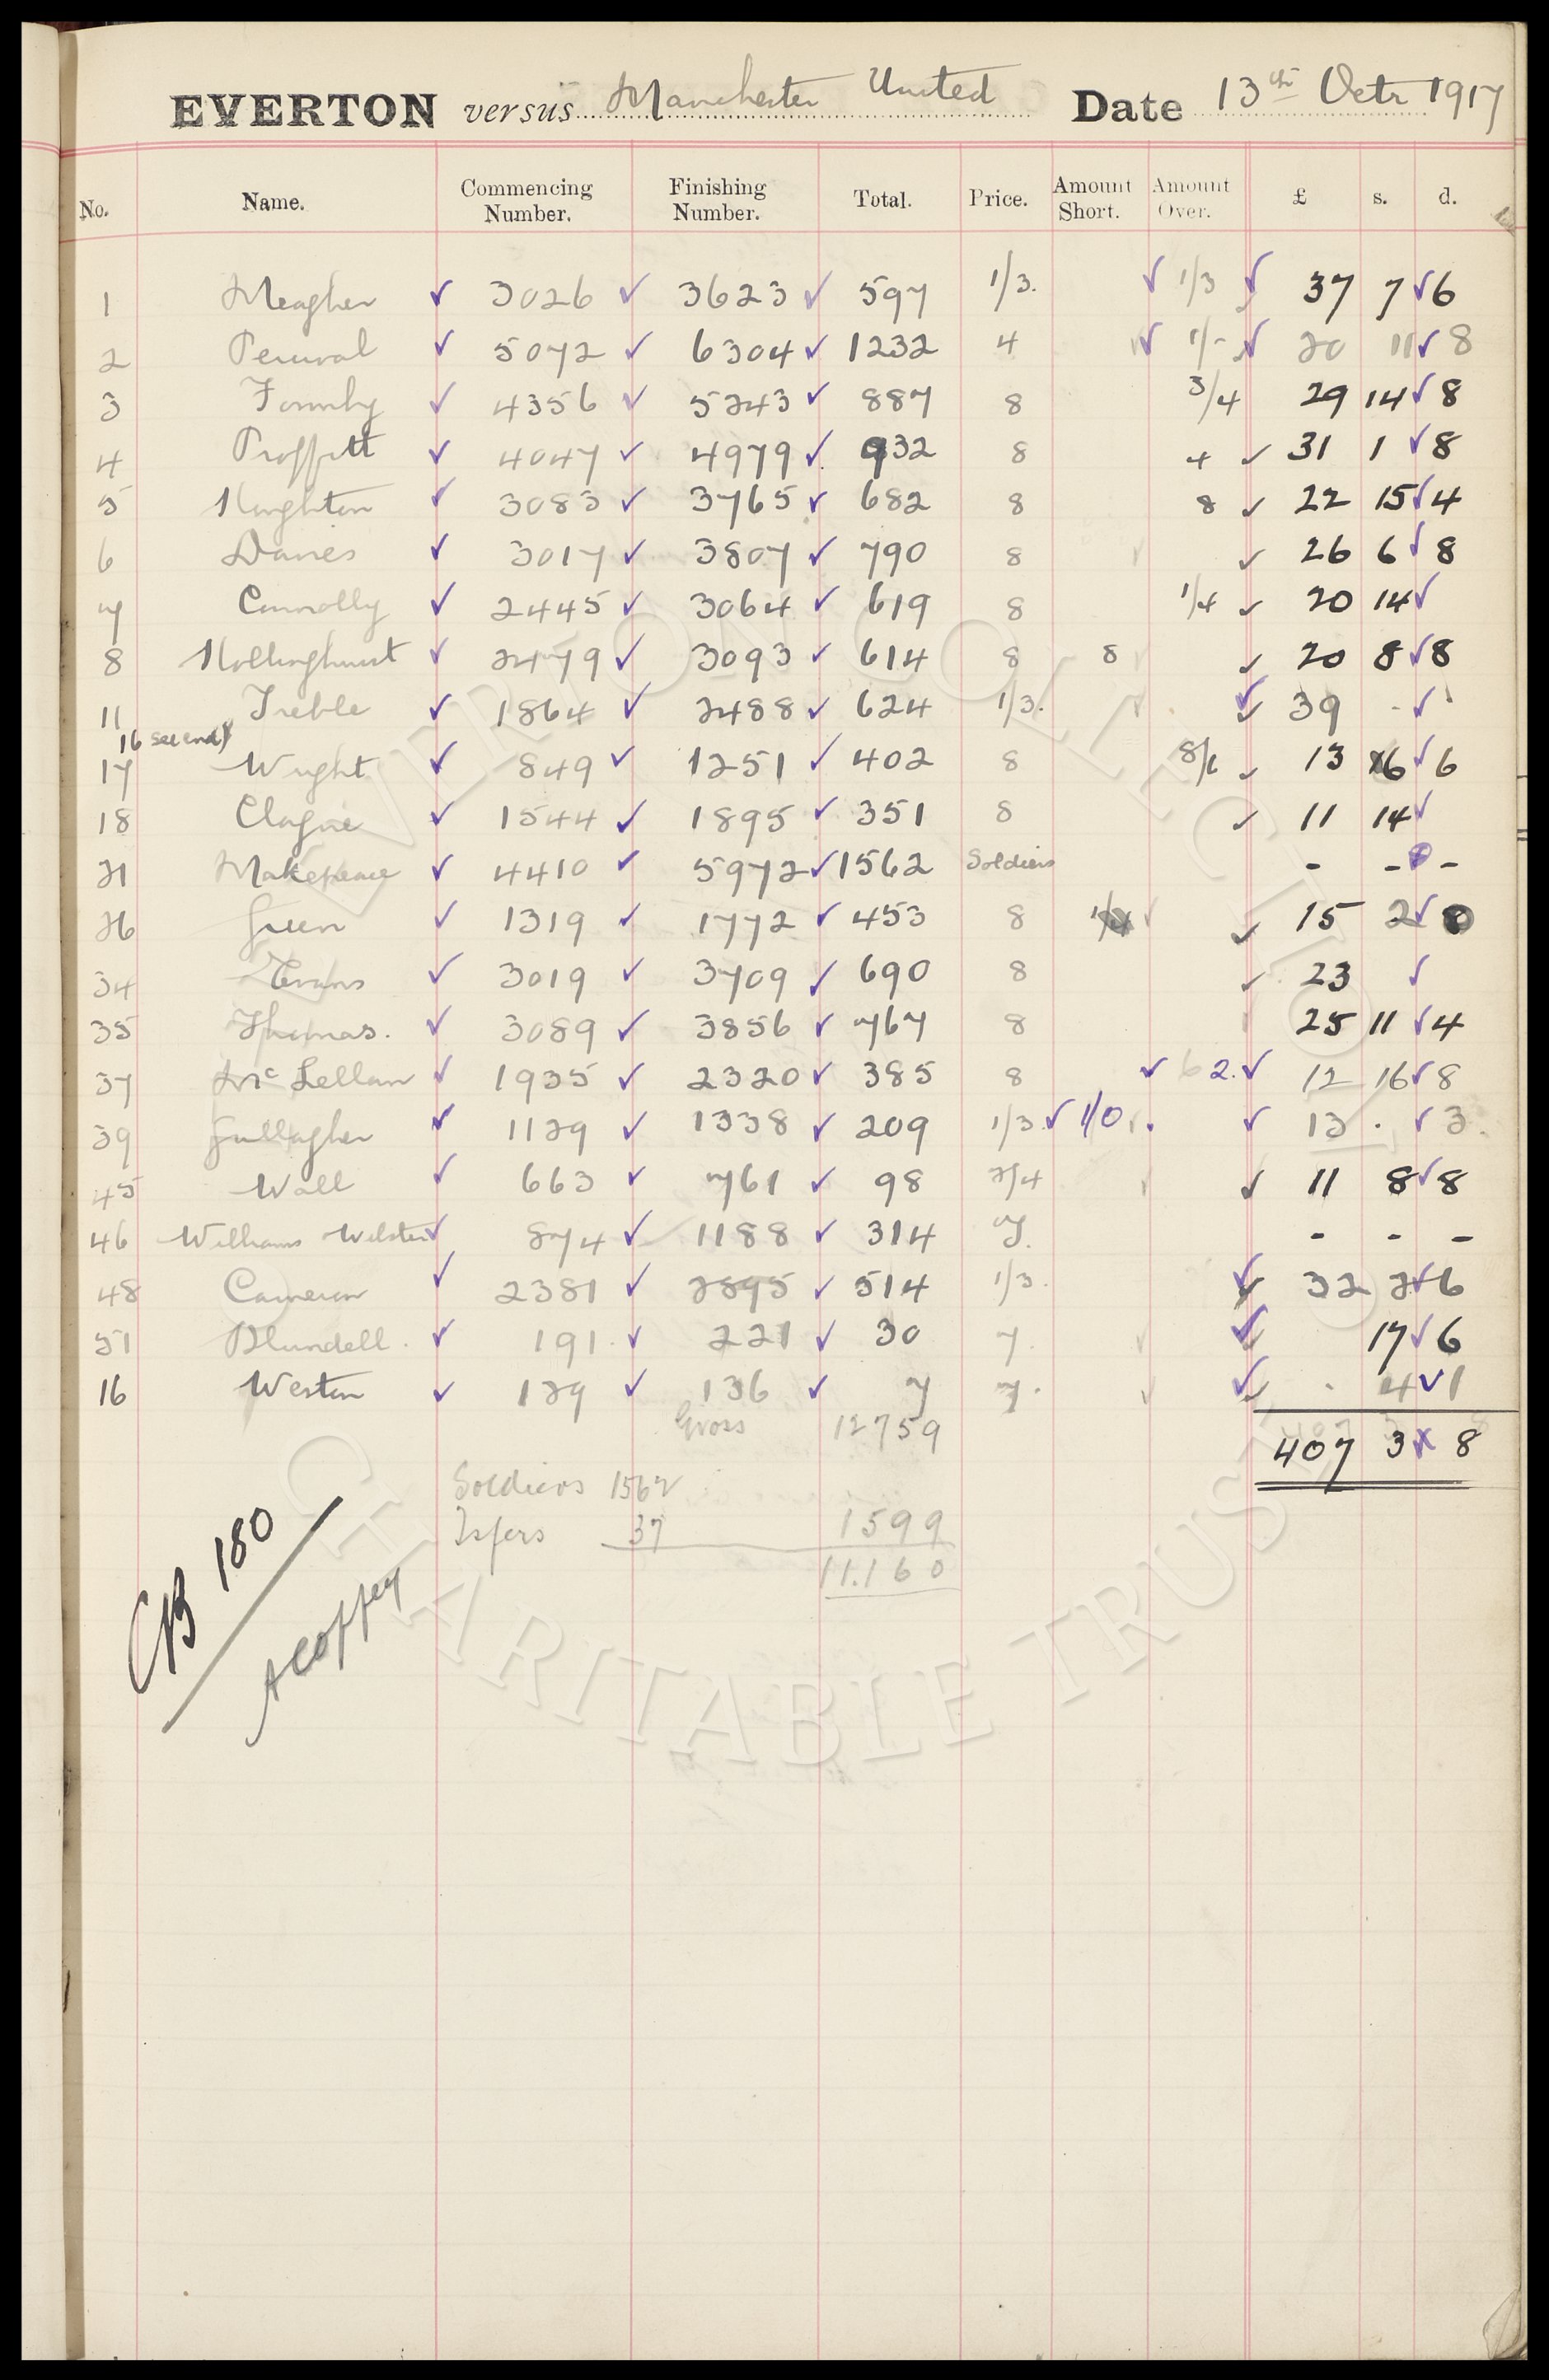 EVERTON versus Manchester United Date 13th Octr 1917
No. Name. Commencing Number. Finishing Number. Total. Price. Amount Short. Amount Over. £ s. d.
1 Meagher 3026 3623 597 1/3. 1/3 37 7 6
2 Percival 5072 6304 1232 4 1/- 20 11 8
3 Formby 4356 5243 887 8 3/4 29 14 8
4 Proffitt 4047 4979 932 8 4 31 1 8
5 Houghton 3083 3765 682 8 8 22 15 4
6 Davies 3017 3807 790 8 26 6 8
7 Connolly 2445 3064 619 8 1/4 20 14
8 Hollinghurst 2479 3093 614 8 8 20 8 8
11 Treble 1864 2488 624 1/3. 39 -
16 seconds
17 Wright 849 1251 402 8 8/6 13 16 6
18 Clague 1544 1895 351 8 11 14
21 Makepeace 4410 5972 1562 Soldiers - - -
26 Green 1319 1772 453 8 15 2 8
34 Evans 3019 3709 690 8 23
35 Thomas. 3089 3856 767 8 25 11 4
37 McLellan 1935 2320 385 8 6 2. 12 16 8
39 Gallagher 1129 1338 209 1/3. 1/0 13 . 3.
45 Wall 663 761 98 2/4 11 8 8
46 Williams 874 1188 314 7. - - -
48 Cameron 2381 2895 514 1/3. 32 2 6
51 Blundell. 191. 221 30 7. 17 6
16 Weston 129 136 7 7. . 4 1
Gross 12759
407 3 8
Soldiers 1562
Tsfers 37 1599
11.160
CB 180
EVERTON COLLECTION CHARITABLE TRUST